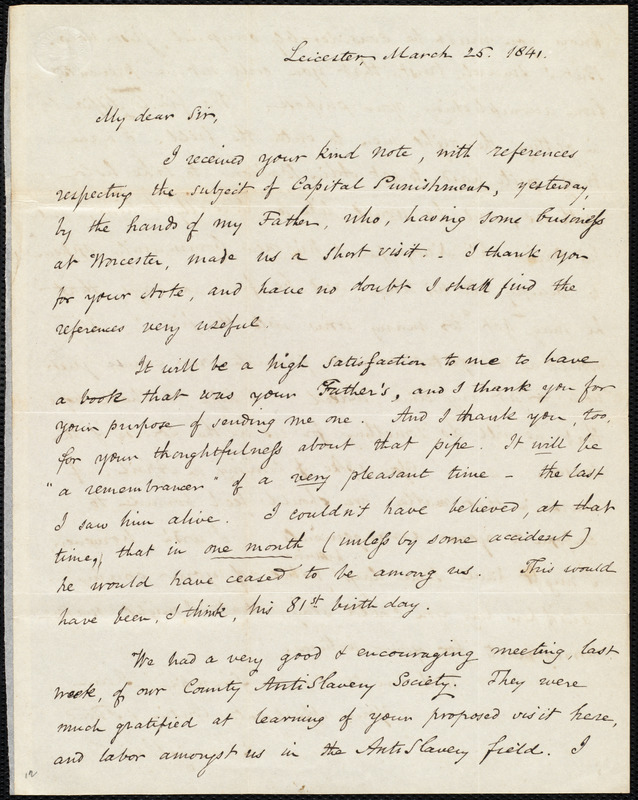 Leicester, March 25. 1841.
My dear Sir,
I received your kind note, with references
respecting the subject of Capital Punishment, yesterday,
by the hands of my Father, who, having some business
at Worcester, made us a short visit. - I thank you
for your Note, and have no doubt I shall find the
references very useful.
It will be a high satisfaction to me to have
a book that was your Father's, and I thank you for
your purpose of sending me one. And I thank you, too,
for your thoughtfulness about that pipe. It will be
"a remembrancer" of a very pleasant time - the last
I saw him alive. I couldn't have believed, at that
time, that in one month (unless by some accident)
he would have ceased to be among us. This would
have been, I think, his 81st birth day.
We had a very good & encouraging meeting, last
week, of our County AntiSlavery Society. They were
much gratified at learning of your proposed visit here,
and labor amongst us in the AntiSlavery field. I